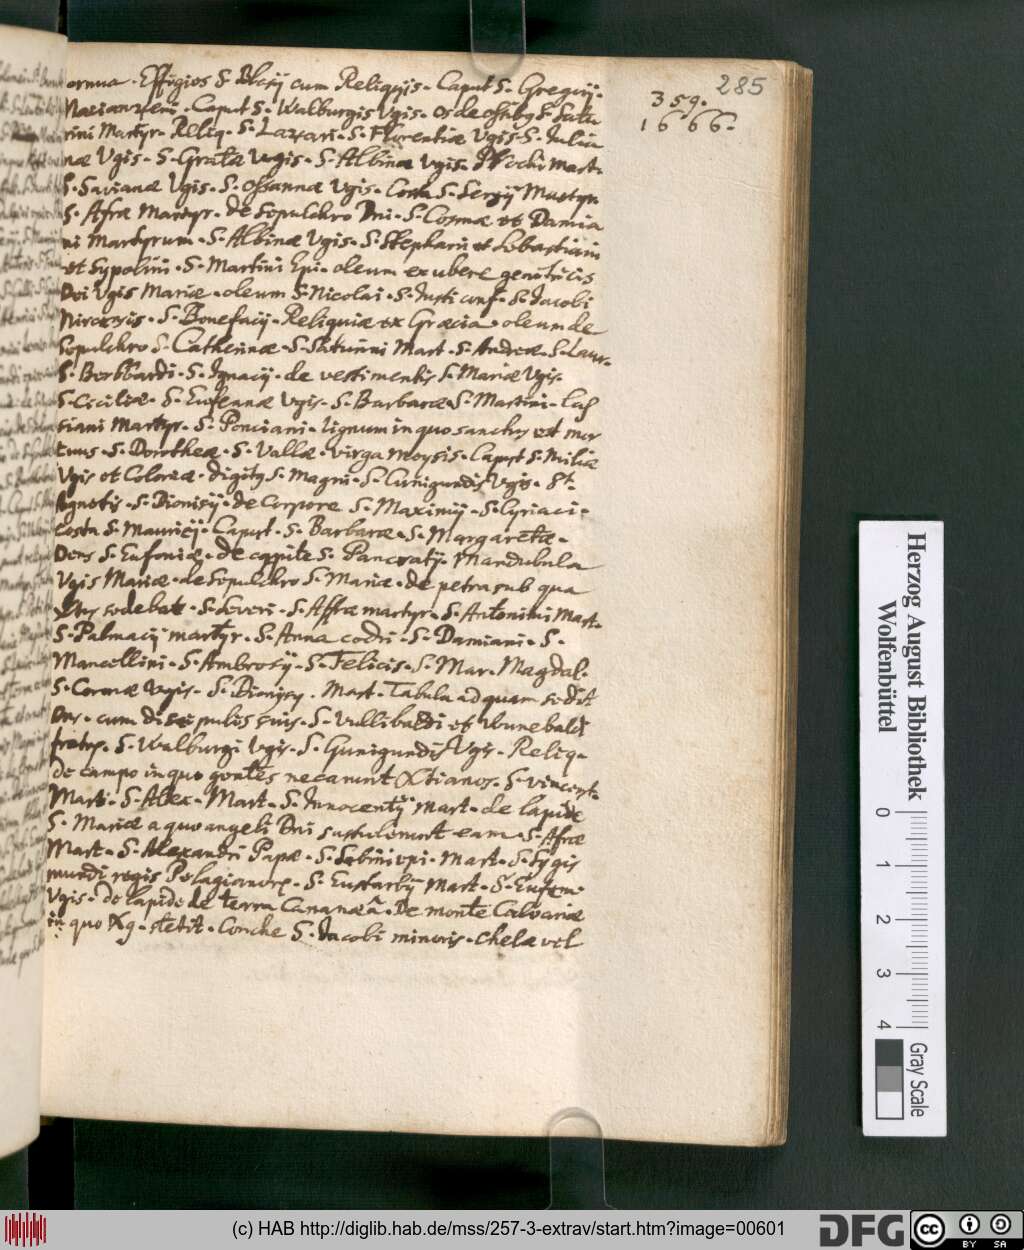 285
359.
1666.
ornua. Effigies S. Blasij cum Reliqijs. Caput S. Gregorij.
Nazianzeni. Caput S. Walburgis Vgis. os de ossibq S. Satu
rini Martyr. Reliq. S. Lazari. S. Florentiæ Vgis. S. Julia
næ Vgis. S. Gratæ Vgis. S. Albinæ Vgis. Mart.
S. Savianæ Vgis. S. Ossannæ Vgis. Costa S. Sergij Martyr
S. Afræ Martyr. de Sepulchro Dni. S. Cosmæ et Damia
ni Martyrum. S. Albinæ Vgis. S. Stephani et Sebastiani
et Sypolini. S. Martini Epi. oleum ex ubere genitricis
Dei Vgis Mariæ. oleum S. Nicolai. S. Justi conf. S. Jacobi
S. Bonefacij. Reliquiæ ex Græcia. oleum de
Sepulchro S. Catherinæ. S. Saturnini Mart. S. Andreæ. S. Laur.
S. Bernhardi. S. Ignacij. de vestimentis S. Mariæ Vgis.
S. Ceciliæ. S. Eufeanæ Vgis. S. Barbaræ. S. Martini. Cas
siani Martyr. S. Ponciani. Lignum in quo sanctus est mor
tuus. S. Dorotheæ. S. Vallæ. virga Moysis. Caput S. Miliæ
Vgis et Coloniæ. digitq S. Magni. S. Cunigundis Vgis. St.
Agnetis. S. Dionisij. de Corpore S. Maximij. S. Cyriaci.
Costa S. Mauricij. Caput. S. Barbaræ. S. Margaretæ.
Dens S. Eufemiæ. de capite S. Pancratij. Mandubula
Vgis Mariæ. de Sepulchro S. Mariæ. de petra sub qua
sedebat. S. Severi. S. Affræ martyr. S. Antonini Mart.
S. Palmacij martyr. S. Anna codri. S. Damiani. S.
Marcellini. S. Ambrosij. S. Felicis. S. Mar. Magdal.
S. Coronæ Vgis. S. Dionisy. Mart. Tabula ad quam sedit
Dns. cum discipulis suis. S. Vullibaldi et Wunebaldi
fratrum. S. Walburgi Vgis. S. Gunigundis Vgis. Reliq.
de campo in quo gentes necarunt Xtianos. S. Vincent.
Marti. S. Alex. Mart. S. Innocentij Mart. de lapide
S. Mariæ a quo angeli Dni sustulerunt eam. S. Afræ
Mart. S. Alexandri Papæ. S. Sabini epi. Mart. S. Sygis
mundi regis Pelagianorum. S. Eustachij Mart. S. Eufem.
Vgis. de lapide de terra Cananæa. De monte Calvariæ
in quo Xq. stetit. Conche S. Jacobi minoris. Chela vel
Herzog August Bibliothek
Wolfenbüttel
0 1 2 3 4
Gray Scale
(c) HAB http://diglib.hab.de/mss/257-3-extrav/start.htm?image=00601
DFG
cc BY SA